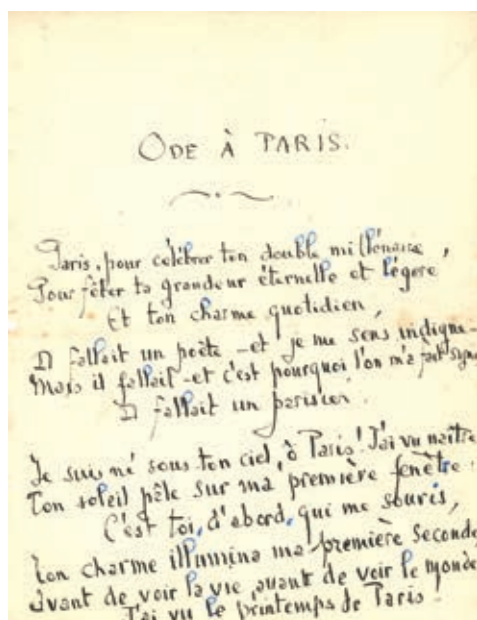 ODE À PARIS.
Paris, pour célébrer ton double millénaire,
Pour fêter ta grandeur éternelle et légère
Et ton charme quotidien,
Il fallait un poète - et je me sens indigne -
Mais il fallait - et c'est pourquoi l'on m'a fait signe
Il fallait un parisien.
Je suis né sous ton ciel, ô Paris! J'ai vu naître
Ton soleil pâle sur ma première fenêtre:
C'est toi, d'abord, qui me souris,
Ton charme illumina ma première seconde
Avant de voir la vie, avant de voir le monde
J'ai vu le printemps de Paris.